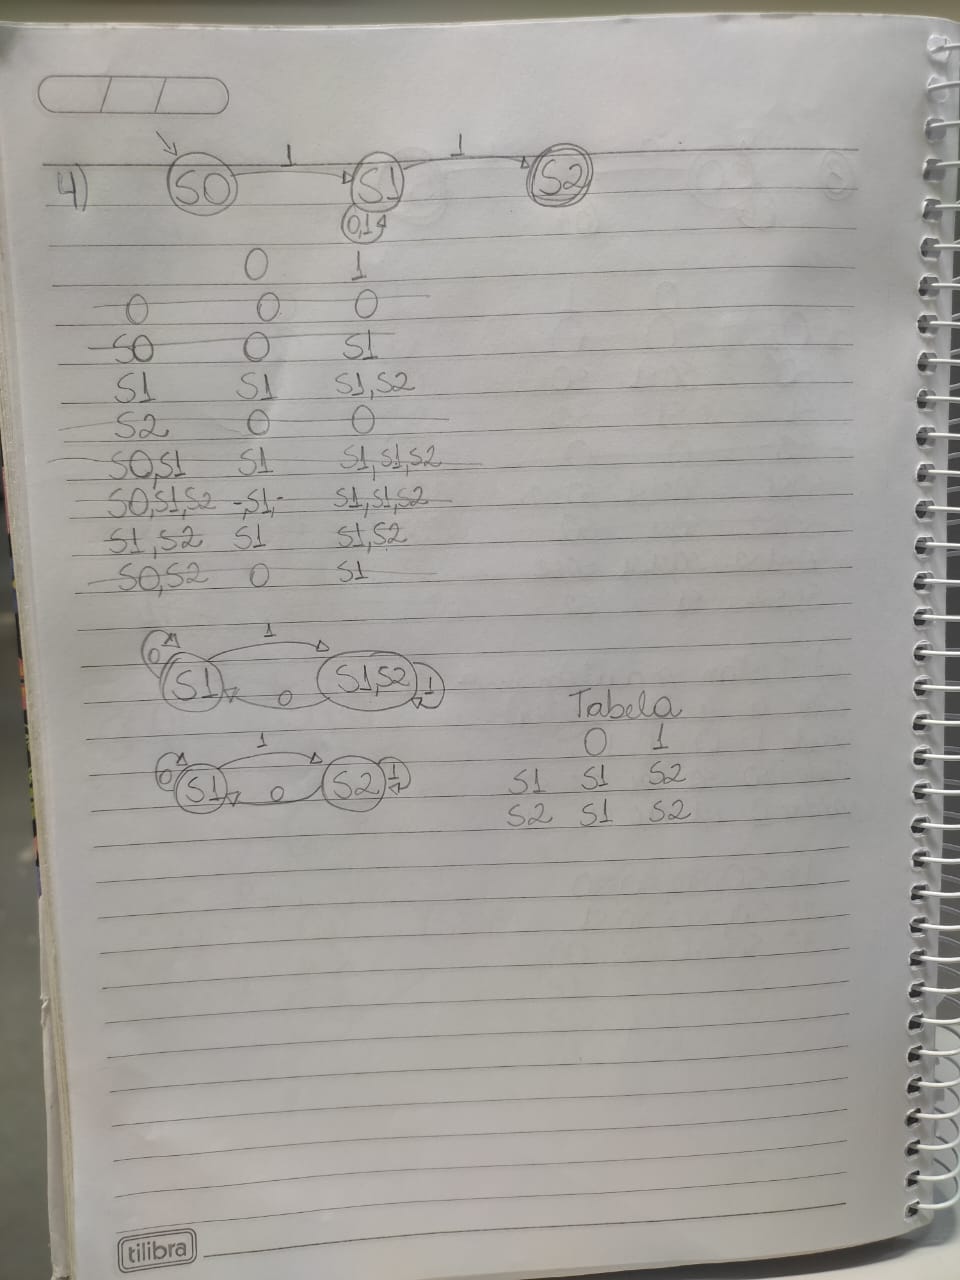 1 1
4) S0 S1 S2
0,1
0 1
0 0 0
S0 0 S1
S1 S1 S1,S2
S2 0 0
S0,S1 S1 S1,S1,S2
S0,S1,S2 -,S1,- S1,S1,S2
S1,S2 S1 S1,S2
S0,S2 0 S1
1
0 S1 0 S1,S2 1
Tabela
0 1
1
0 S1 0 S2 1
S1 S1 S2
S2 S1 S2
tilibra